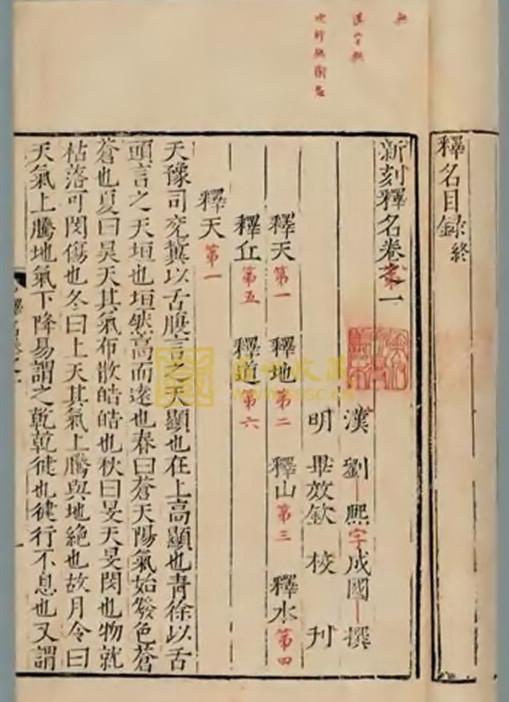 釋名目録終
無
新刻釋名卷第一
漢 劉熙字成國 撰
明 畢效欽 校 刊
釋天第一 釋地第二 釋山第三 釋水第四
釋丘第五 釋道第六
釋天第一
天豫司兖冀以舌腹言之天顯也在上高顯也青徐以舌
頭言之天垣也垣然高而遠也春曰蒼天陽氣始發色蒼
蒼也夏曰昊天其氣布散皓皓也秋曰旻天旻閔也物就
枯落可閔傷也冬曰上天其氣上騰與地絶也故月令曰
天氣上騰地氣下降易謂之乾乾健也健行不息也又謂